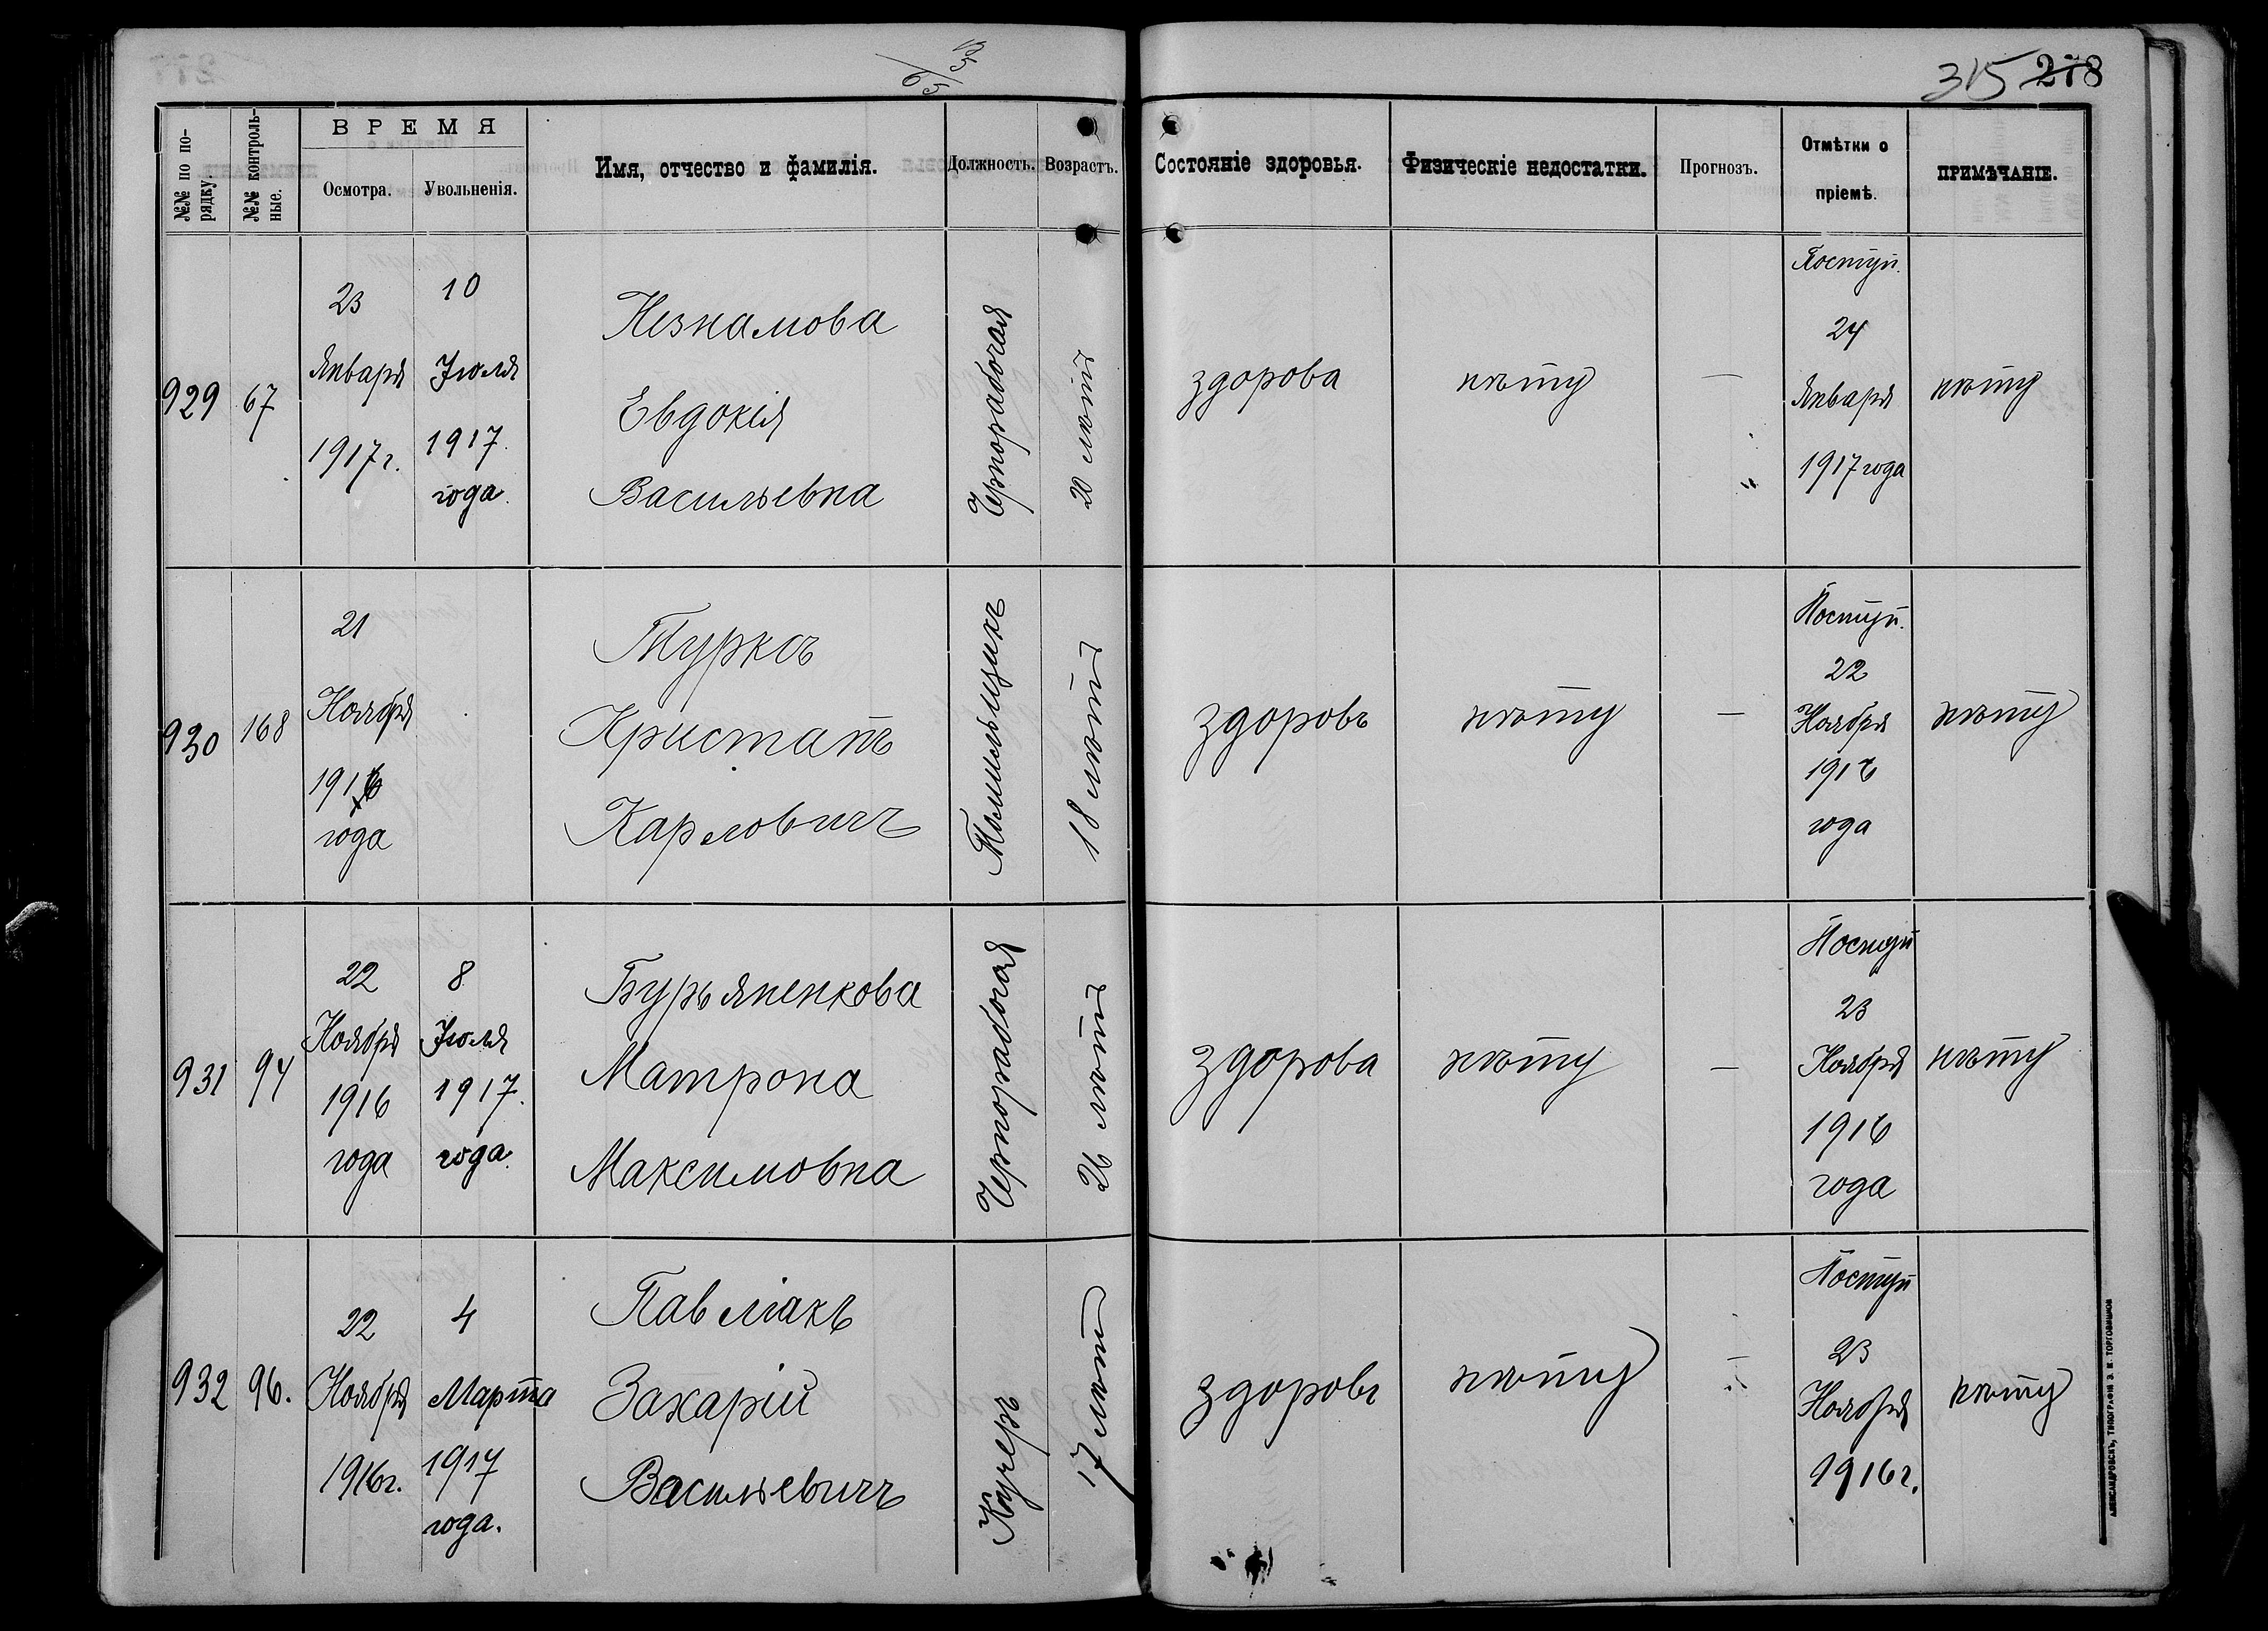 315 278
№№ по по-
рядку.
№№ контроль-
ные.
ВРЕМЯ
Осмотра.
Увольненія.
Имя, отчество и фамилія.
Должность.
Возрастъ.
Состояніе здоровья.
Физическіе недостатки.
Прогнозъ.
Отмѣтки о
пріемѣ.
ПРИМѢЧАНІЕ.
929
67
23
Января
1917 г.
10
Іюля
1917.
года.
Незнамова
Евдокія
Васильевна
Чернорабочая
20 лѣтъ
здорова
нѣту
—
Поступ.
24
Января
1917 года
нѣту
930
168
21
Ноября
1916
года
Туркъ
Кристапъ
Карловичъ
18 лѣтъ
здоровъ
нѣту
—
Поступ.
22
Ноября
1916
года
нѣту
931
94
22
Ноября
1916
года
8
Іюля
1917.
года.
Бурьяненкова
Матрона
Максимовна
Чернорабочая
26 лѣтъ
здорова
нѣту
—
Поступ
23
Ноября
1916
года
нѣту
932
96.
22
Ноября
1916 г.
4
Марта
1917
года.
Павліакъ
Захарій
Васильевичъ
Кучеръ
17 лѣтъ
здоровъ
нѣту
—
Поступ
23
Ноября
1916 г.
нѣту
АЛЕКСАНДРОВСКЪ, ТИПОГРАФІЯ Э. И. ТОРГОВИЦКОВ